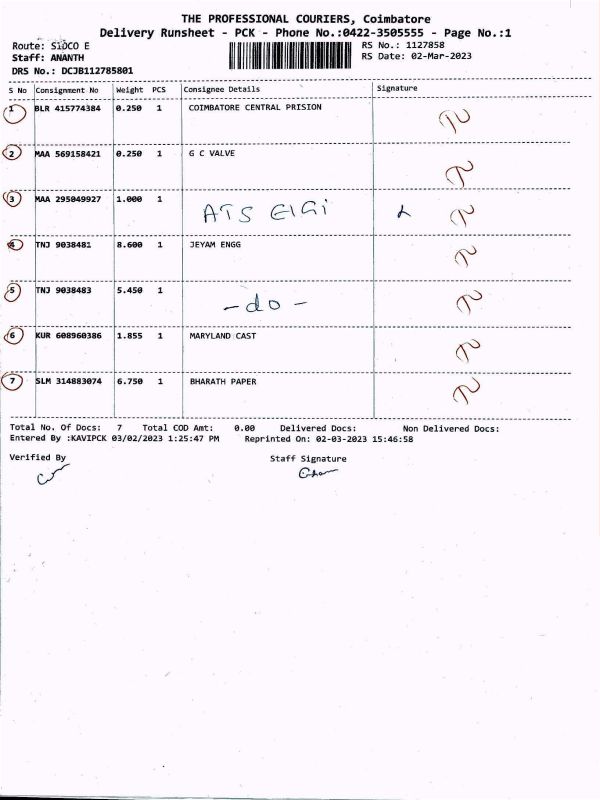 THE PROFESSIONAL COURIERS, Coimbatore
Delivery Runsheet - PCK - Phone No.:0422-3505555 - Page No.:1
Route: SIDCO E RS No.: 1127858
Staff: ANANTH RS Date: 02-Mar-2023
DRS No.: DCJB112785801
S No Consignment No Weight PCS Consignee Details Signature
1 BLR 415774384 0.250 1 COIMBATORE CENTRAL PRISION
2 MAA 569158421 0.250 1 G C VALVE
3 MAA 295049927 1.000 1 ATS ElGi
4 TNJ 9038481 8.600 1 JEYAM ENGG
5 TNJ 9038483 5.450 1 -do-
6 KUR 608960386 1.855 1 MARYLAND CAST
7 SLM 314883074 6.750 1 BHARATH PAPER
Total No. Of Docs: 7 Total COD Amt: 0.00 Delivered Docs: Non Delivered Docs:
Entered By :KAVIPCK 03/02/2023 1:25:47 PM Reprinted On: 02-03-2023 15:46:58
Verified By Staff Signature